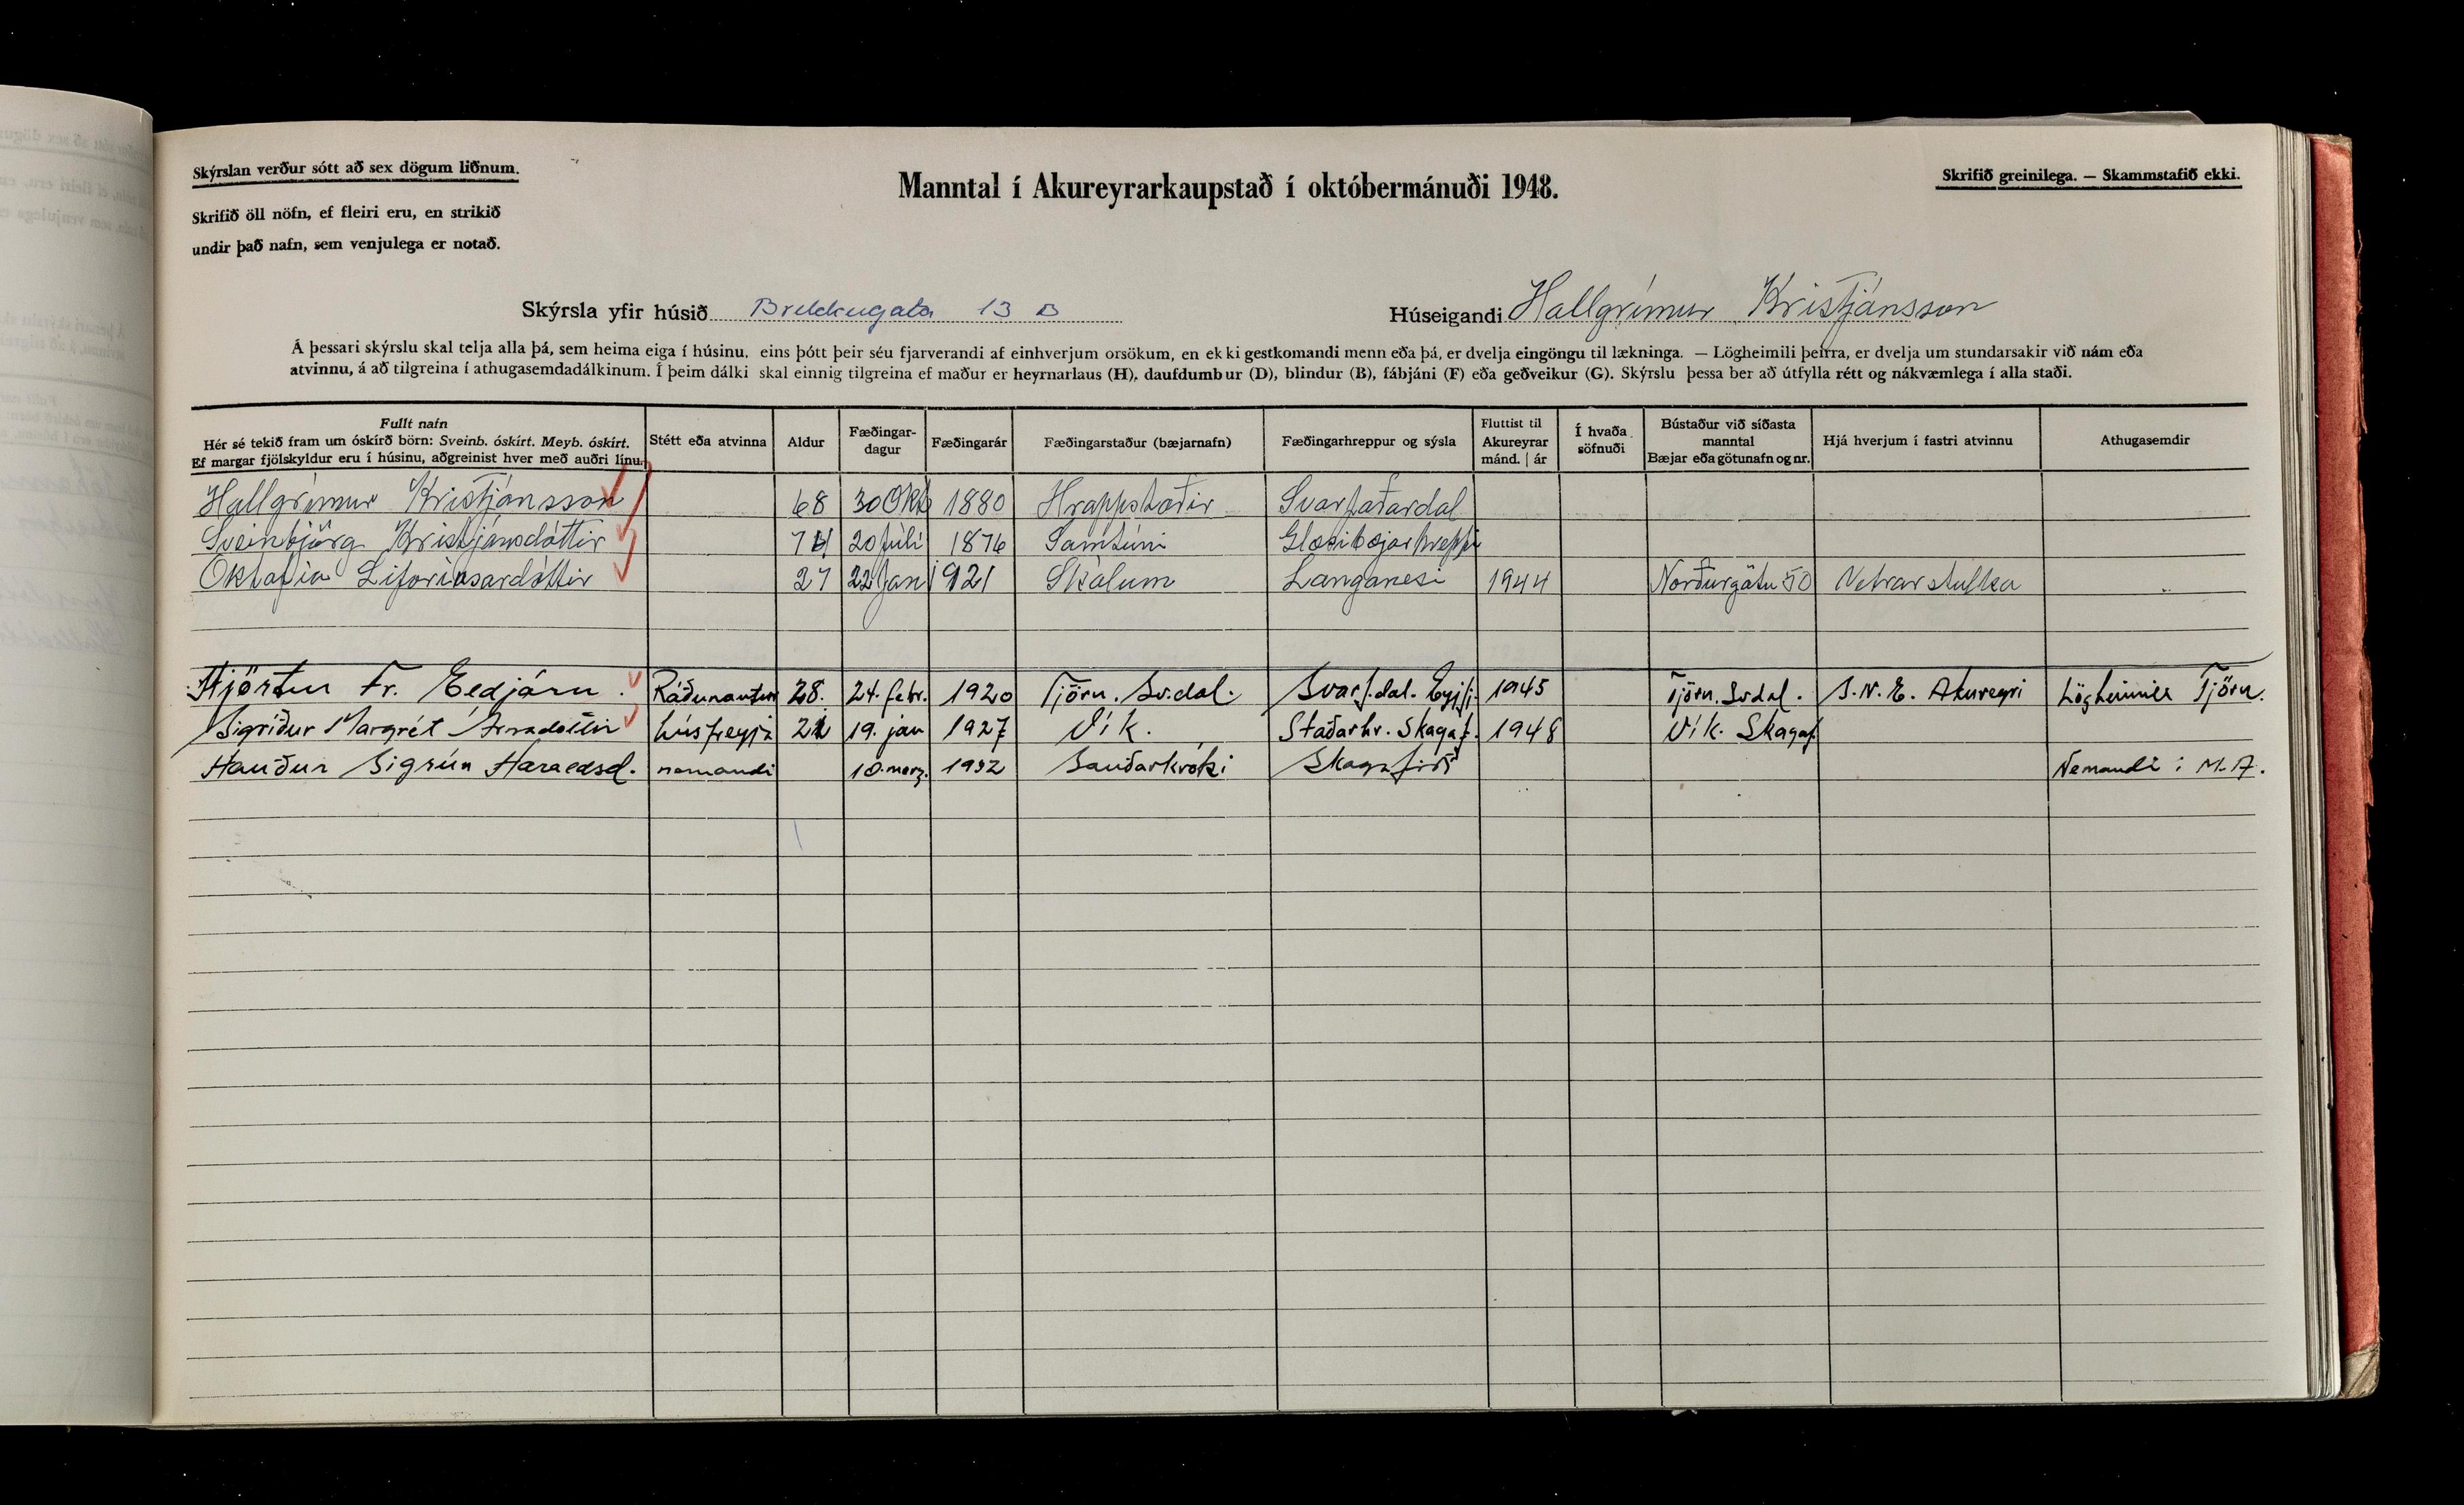 Skýrslan verður sótt að sex dögum liðnum.
Skrifið öll nöfn, ef fleiri eru, en strikið
undir það nafn, sem venjulega er notað.
Manntal í Akureyrarkaupstað í októbermánuði 1948.
Skrifið greinilega. — Skammstafið ekki.
Skýrsla yfir húsið Brekkugata 13 B
Húseigandi Hallgrímur Kristjánsson
Á þessari skýrslu skal telja alla þá, sem heima eiga í húsinu, eins þótt þeir séu fjarverandi af einhverjum orsökum, en ekki gestkomandi menn eða þá, er dvelja eingöngu til lækninga. — Lögheimili þeirra, er dvelja um stundarsakir við nám eða
atvinnu, á að tilgreina í athugasemdadálkinum. Í þeim dálki skal einnig tilgreina ef maður er heyrnarlaus (H), daufdumbur (D), blindur (B), fábjáni (F) eða geðveikur (G). Skýrslu þessa ber að útfylla rétt og nákvæmlega í alla staði.
Fullt nafn
Hér sé tekið fram um óskírð börn: Sveinb. óskírt. Meyb. óskírt.
Ef margar fjölskyldur eru í húsinu, aðgreinist hver með auðri línu.
Stétt eða atvinna
Aldur
Fæðingar-
dagur
Fæðingarár
Fæðingarstaður (bæjarnafn)
Fæðingarhreppur og sýsla
Fluttist til
Akureyrar
mánd. | ár
Í hvaða
söfnuði
Bústaður við síðasta
manntal
Bæjar eða götunafn og nr.
Hjá hverjum í fastri atvinnu
Athugasemdir
Hallgrímur Kristjánsson 68 30 Okt 1880 Hrappstaðir Svarfaðardal
Sveinbjörg Kristjánsdóttir 20 júlí 1876 Samtúni Glæsibæjarhreppi
Oktafia Liforiusardóttir 27 22 Jan 1921 Skálum Langanesi 1944 Norðurgötu 50 Vetrarstúlka
Hjörtur Fr. Eldjárn. Ráðunautur 28. 24. febr. 1920 Tjörn. Sv.dal. Svarf.dal. Eyjf. 1945 Tjörn. Sv.dal. S.N.E. Akureyri Lögheimili Tjörn.
Sigríður Margrét Árnadóttir húsfreyja 21 19. jan 1927 Vík. Staðarhr. Skagaf. 1948 Vík. Skagaf.
Hauður Sigrún Haraldsd. nemandi 10. marz. 1932 Sauðarkróki Skagafirði Nemandi í M.A.